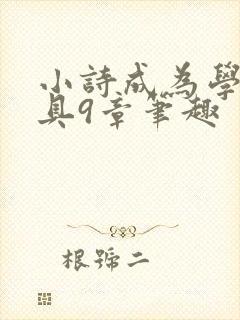 小詩成為學
具9章筆趣
根號二